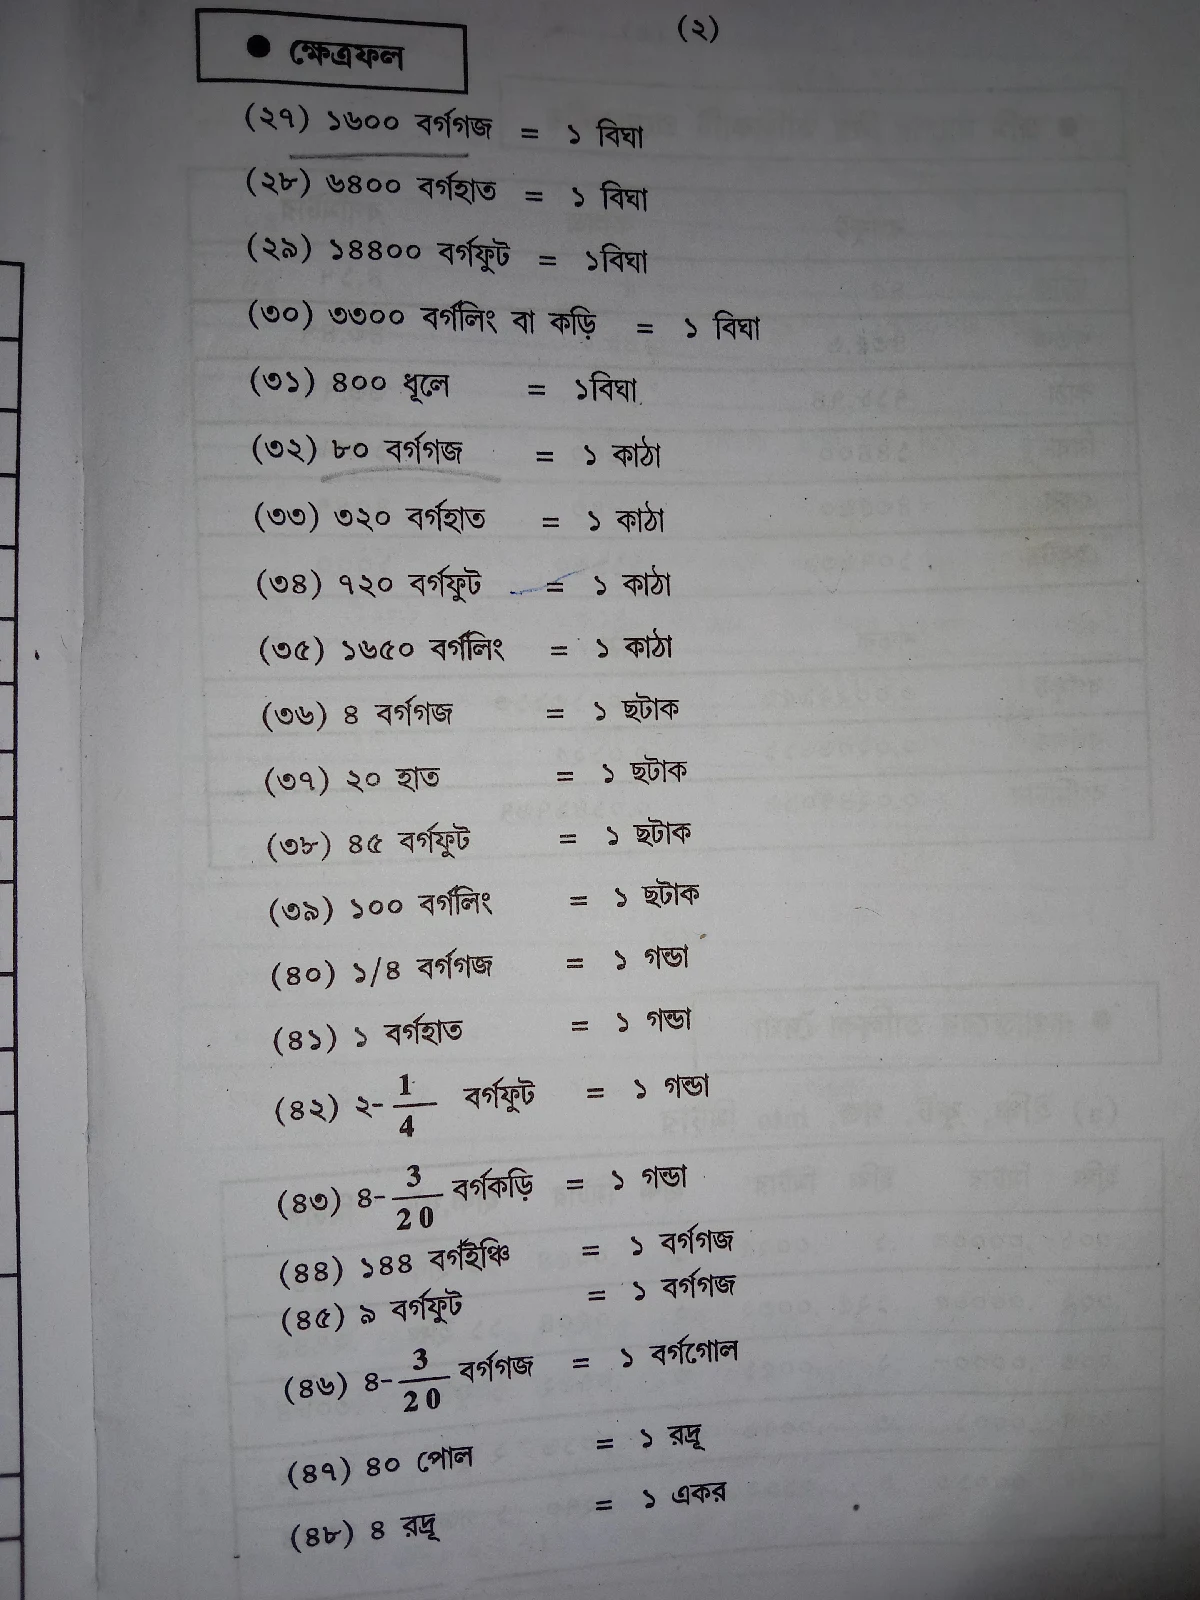 (২)
● ক্ষেত্রফল
(২৭) ১৬০০ বর্গগজ = ১ বিঘা
(২৮) ৬৪০০ বর্গহাত = ১ বিঘা
(২৯) ১৪৪০০ বর্গফুট = ১বিঘা
(৩০) ৩৩০০ বর্গলিং বা কড়ি = ১ বিঘা
(৩১) ৪০০ ধূলে = ১বিঘা
(৩২) ৮০ বর্গগজ = ১ কাঠা
(৩৩) ৩২০ বর্গহাত = ১ কাঠা
(৩৪) ৭২০ বর্গফুট = ১ কাঠা
(৩৫) ১৬৫০ বর্গলিং = ১ কাঠা
(৩৬) ৪ বর্গগজ = ১ ছটাক
(৩৭) ২০ হাত = ১ ছটাক
(৩৮) ৪৫ বর্গফুট = ১ ছটাক
(৩৯) ১০০ বর্গলিং = ১ ছটাক
(৪০) ১/৪ বর্গগজ = ১ গন্ডা
(৪১) ১ বর্গহাত = ১ গন্ডা
(৪২) ২-1/4 বর্গফুট = ১ গন্ডা
(৪৩) ৪-3/20 বর্গকড়ি = ১ গন্ডা
(৪৪) ১৪৪ বর্গইঞ্চি = ১ বর্গগজ
(৪৫) ৯ বর্গফুট = ১ বর্গগজ
(৪৬) ৪-3/20 বর্গগজ = ১ বর্গগোল
(৪৭) ৪০ পোল = ১ রদ্রূ
(৪৮) ৪ রদ্রূ = ১ একর